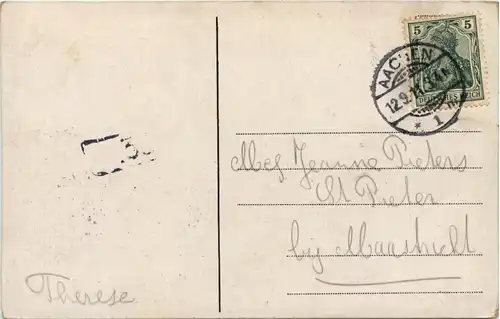 5 5
DEUTSCHES REICH
AACHEN
12.9.
* 1
Mej Jeanne Pieters
St Pieter
bij Maastricht
Therese